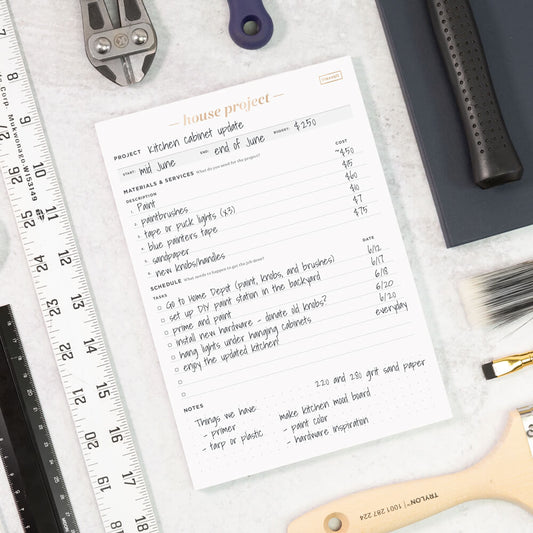 house project
FINANCES
PROJECT Kitchen cabinet update
START: mid June END: end of June BUDGET: $250
MATERIALS & SERVICES What do you need for the project?
DESCRIPTION COST
1. Paint ~$50
2. paintbrushes $15
3. tape or puck lights (x3) $60
4. blue painters tape $10
5. sandpaper $7
6. new knobs/handles $75
SCHEDULE What needs to happen to get the job done?
TASKS DATE
Go to Home Depot (paint, knobs, and brushes) 6/12
set up DIY paint station in the backyard 6/17
prime and paint 6/18
install new hardware - donate old knobs? 6/20
hang lights under hanging cabinets 6/20
enjoy the updated kitchen! everyday
NOTES
220 and 280 grit sand paper
Things we have:
- primer
- tarp or plastic
make kitchen mood board
- paint color
- hardware inspiration
Corp. Mukwonago WI 53149
7
8
9
10
11
12
13
14
15
16
17
18
TRYLON™
1001 287 224